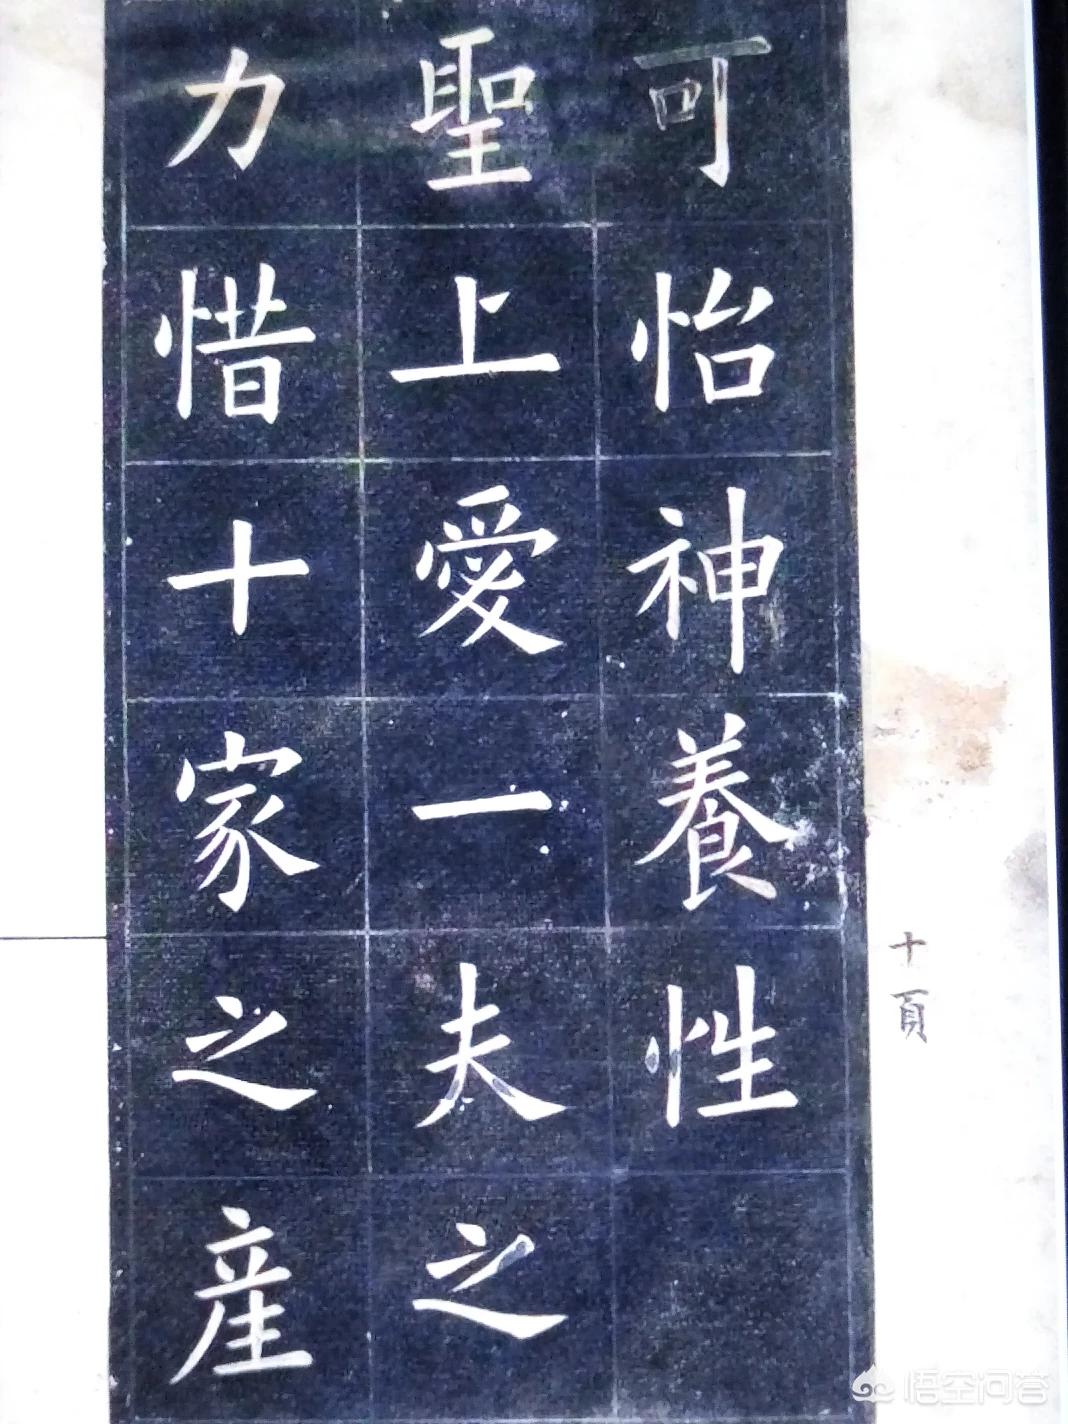 十頁
可怡神養性
聖上愛一夫之
力惜十家之産
悟空问答